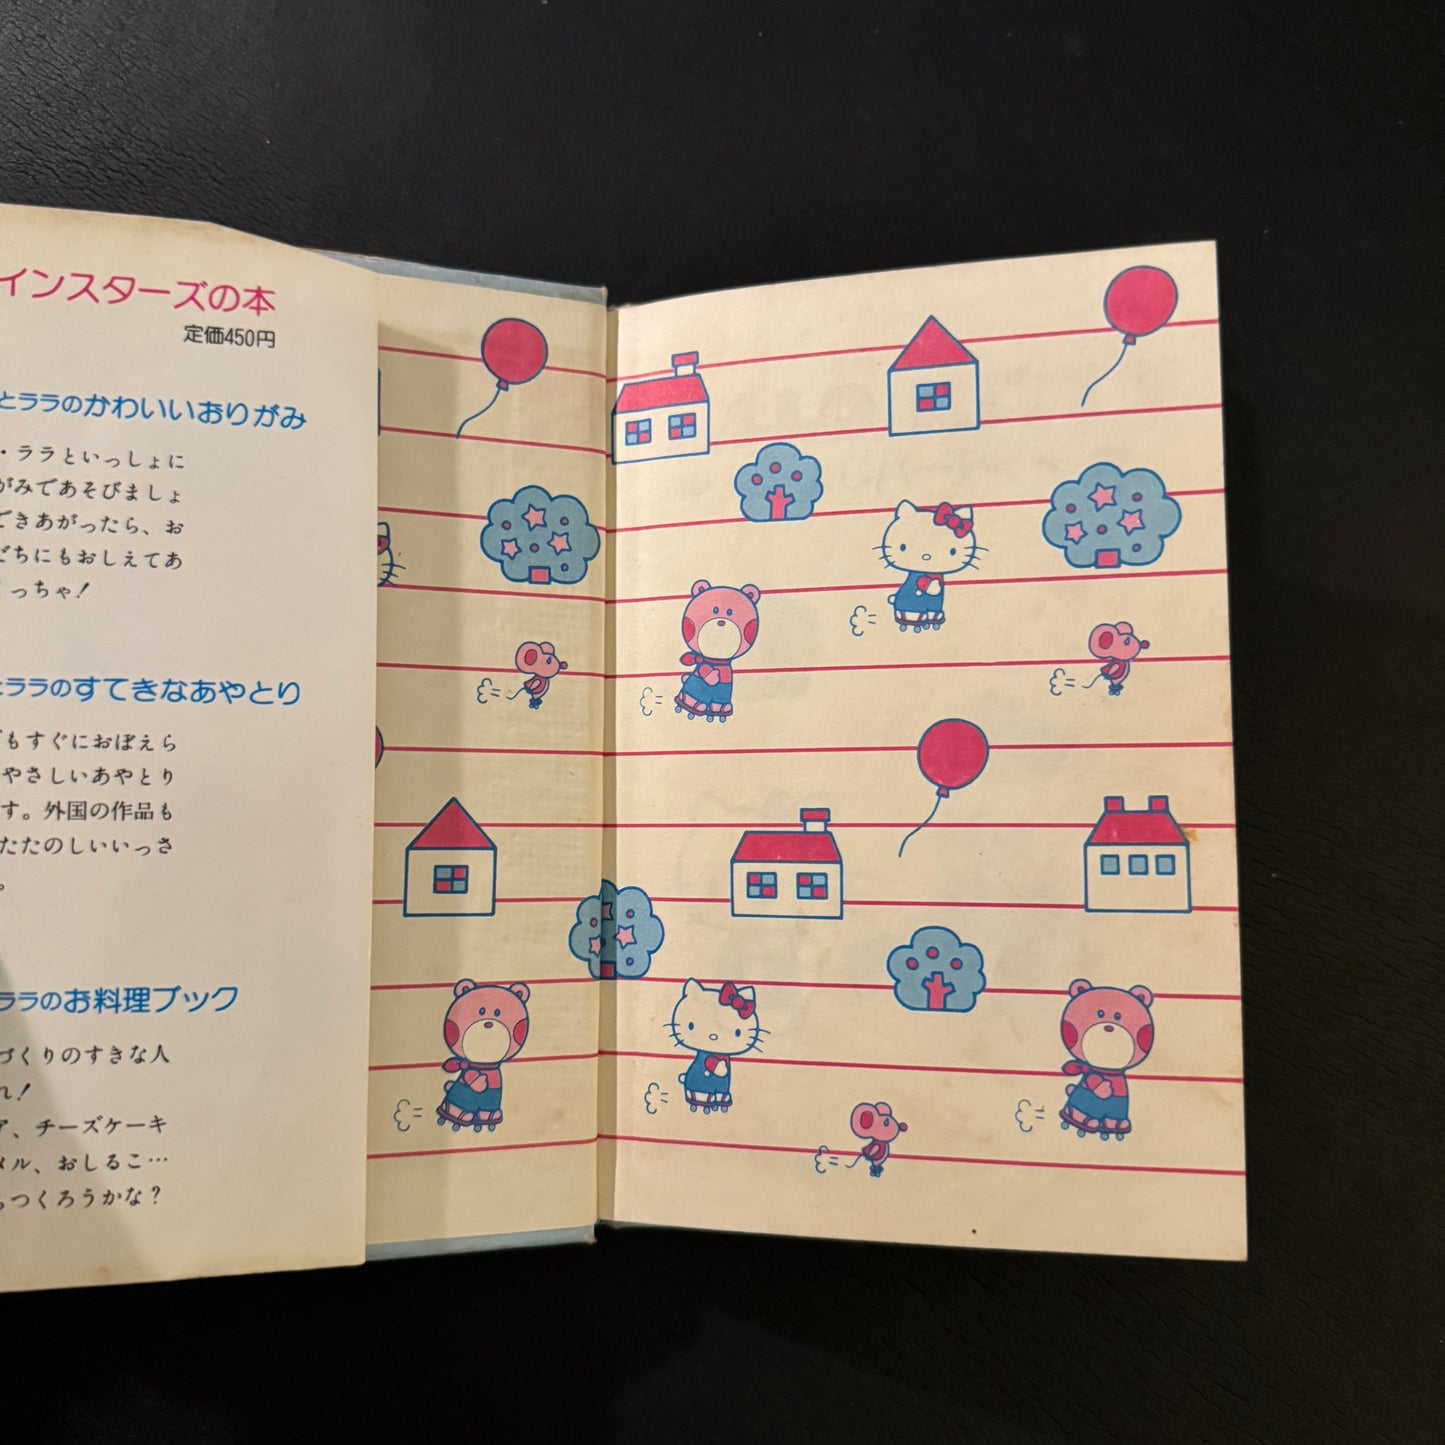 インスターズの本
定価450円
とララのかわいいおりがみ
・ララといっしょに
がみであそびましょ
できあがったら、お
だちにもおしえてあ
っちゃ！
とララのすてきなあやとり
でもすぐにおぼえら
やさしいあやとり
す。外国の作品も
たたのしいいっさ
。
ララのお料理ブック
づくりのすきな人
れ！
ア、チーズケーキ
メル、おしるこ…
つくろうかな？